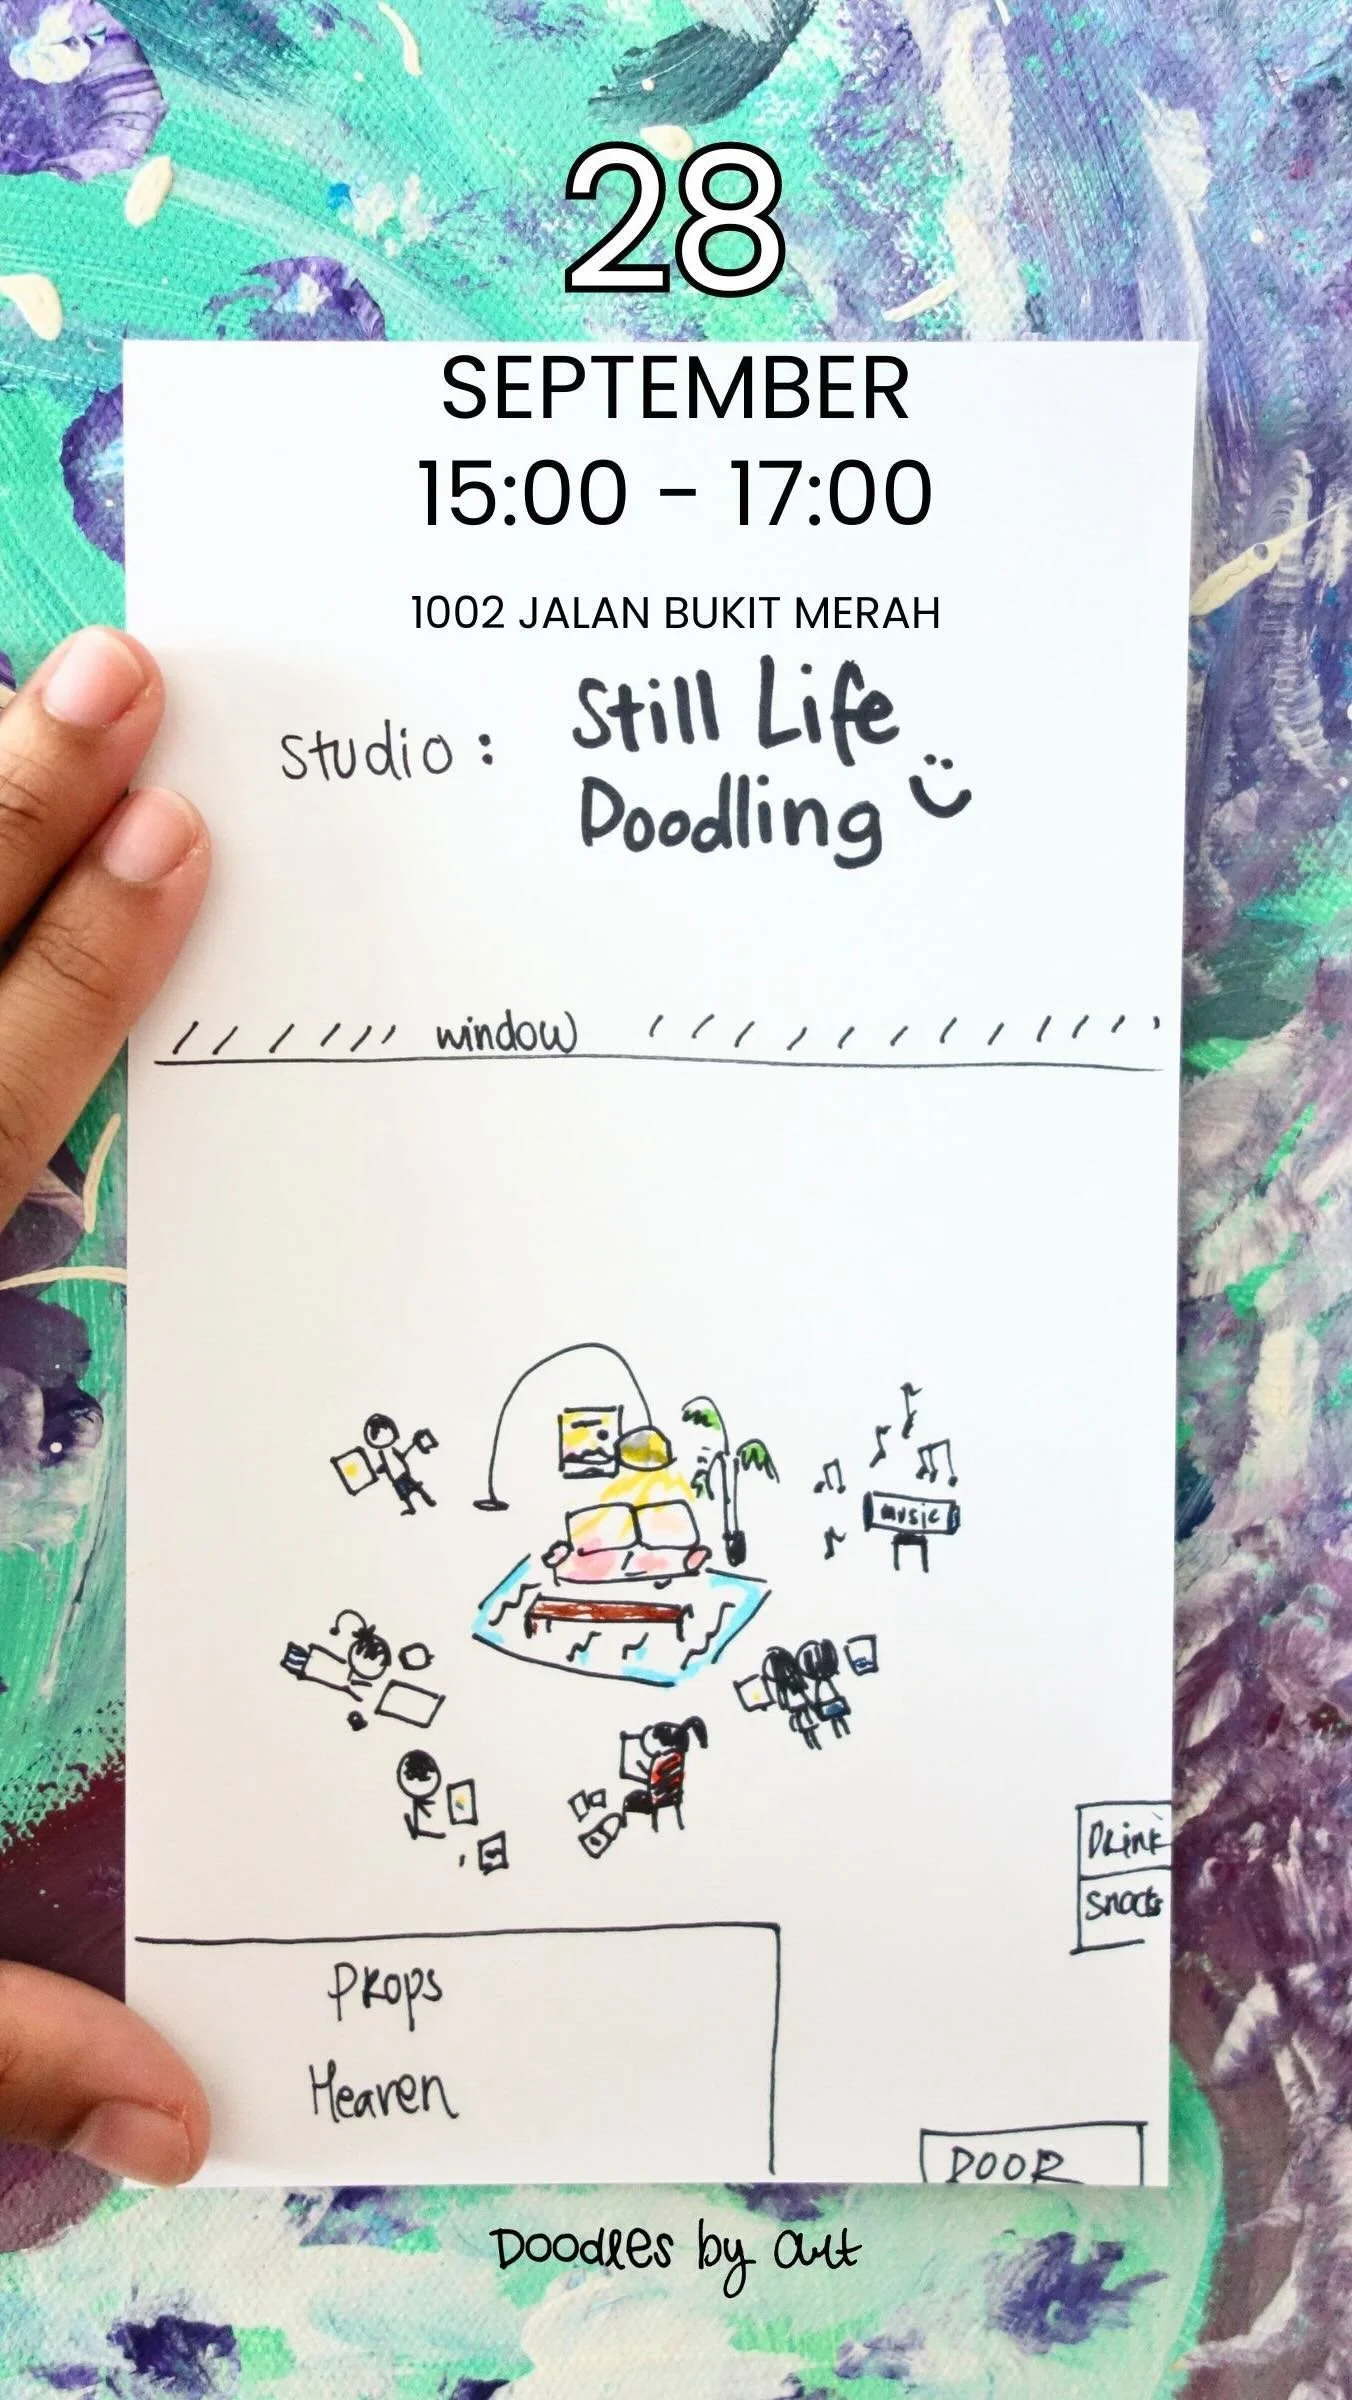 28
SEPTEMBER
15:00 - 17:00
1002 JALAN BUKIT MERAH
studio: Still Life
Doodling
window
music
Drink
Snacks
Props
Heaven
DOOR
Doodles by art